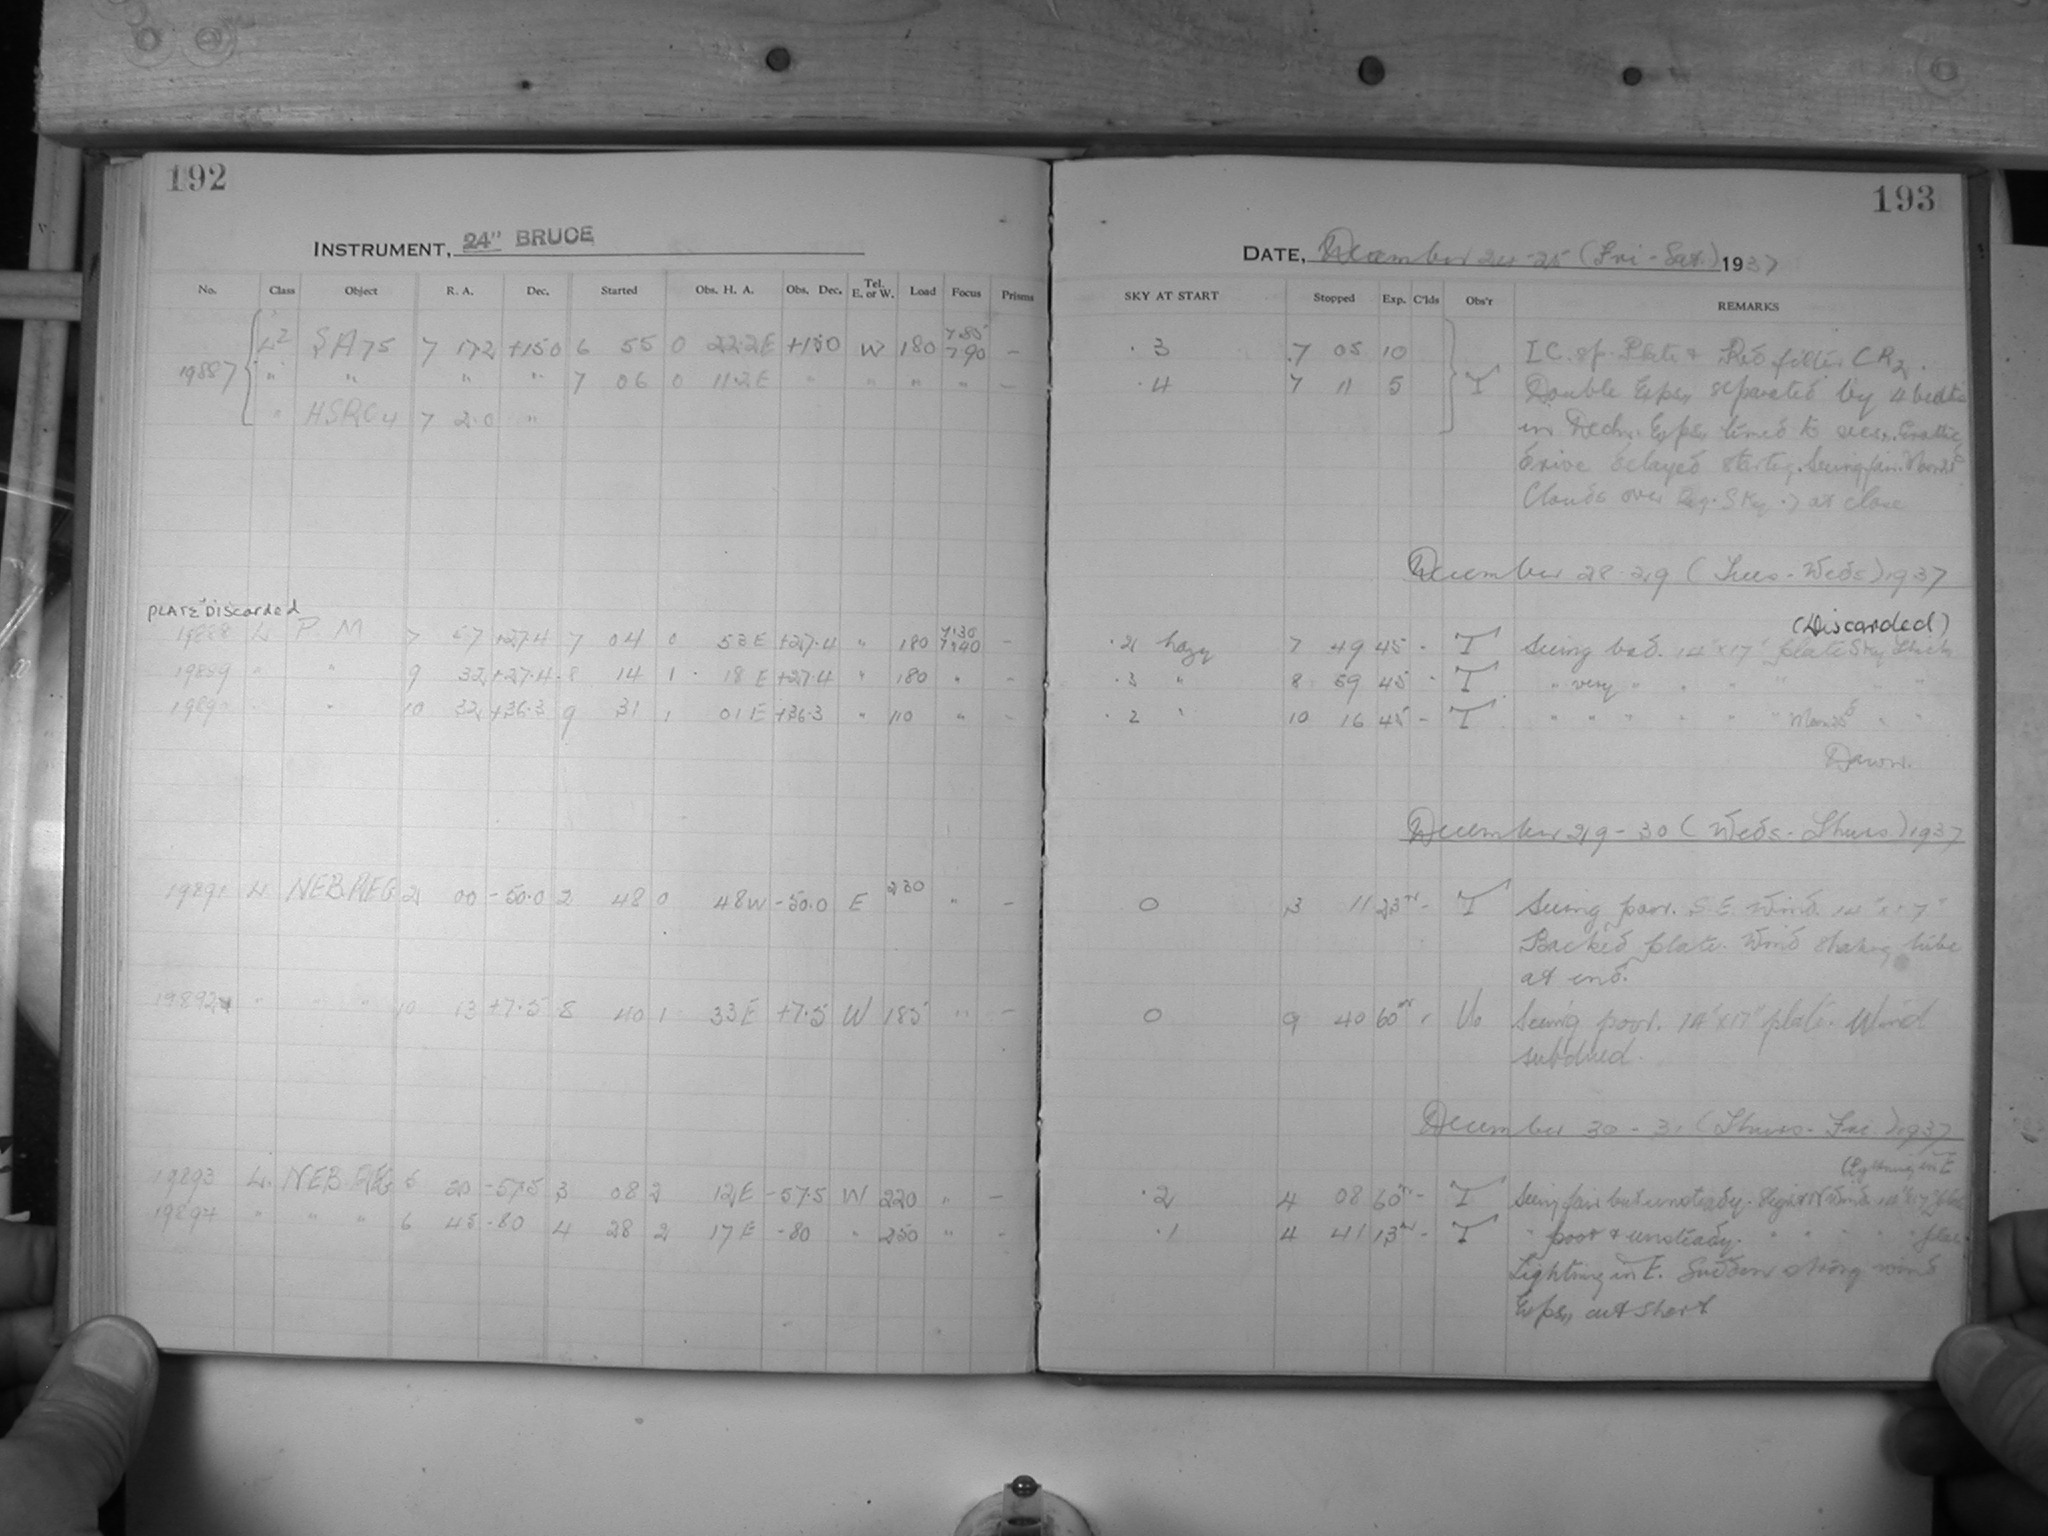 192
INSTRUMENT, 24" BRUCE
No. Class Object R. A. Dec. Started Obs. H. A. Obs. Dec. Tel. E. or W. Load Focus Prisms
19887 L2 SA 75 7 17.2 +15.0 6 55 0 22.2E +15.0 W 180 7.85 7.90 –
" " " " 7 06 0 11.2E " " " " –
" HSRC 4 7 2.0 "
PLATE Discarded
19888 L P M 7 57 +27.4 7 04 0 53 E +27.4 " 180 7.30 7.40 –
19889 " " 9 32 +27.4 8 14 1 18 E +27.4 " 180 " –
19890 " " 10 32 +36.3 9 31 1 01 E +36.3 " 110 " –
19891 L NEB.REG 2 00 -50.0 2 48 0 48 W -50.0 E 230 " –
19892 " " " 10 13 +7.5 8 40 1 33 E +7.5 W 185 " –
19893 L NEB REG 5 20 -57.5 3 08 2 12 E -57.5 W 220 " –
19894 " " " 6 45 -80 4 28 2 17 E -80 " 250 " –
193
DATE, December 24-25 (Fri-Sat.) 1937
SKY AT START Stopped Exp. C'lds Obs'r REMARKS
.3 7 05 10 I C. sp. Plate & Red filter CR2.
.4 7 11 5 T Double Exps. separated by
in Decln. Exps. timed to secs.
drive delayed starting. Seeing fair.
Clouds over Reg. Sky .7 at close
December 28-29 (Tues-Weds) 1937
(Discarded)
.2 hazy 7 49 45 - T Seeing bad. 14"x17" plate Sky thick
.3 " 8 59 45 - T " very " " " " " "
.2 " 10 16 45 - T " " " " " " " "
Dawn.
December 29-30 (Weds-Thurs) 1937
0 3 11 23m - T Seeing poor. S.E. wind. 14"x17"
Backed plate. Wind shaking tube
at end.
0 9 40 60m Seeing poor. 14"x17" plate. Wind
subdued.
December 30-31 (Thurs-Fri.) 1937
(Lightning in E
.2 4 08 60m - T Seeing fair but unsteady. Light N wind. 14"x17" plate
.1 4 41 13m - T " poor & unsteady. " " " " " plate.
Lightning in E. Sudden strong wind
Exps. cut short